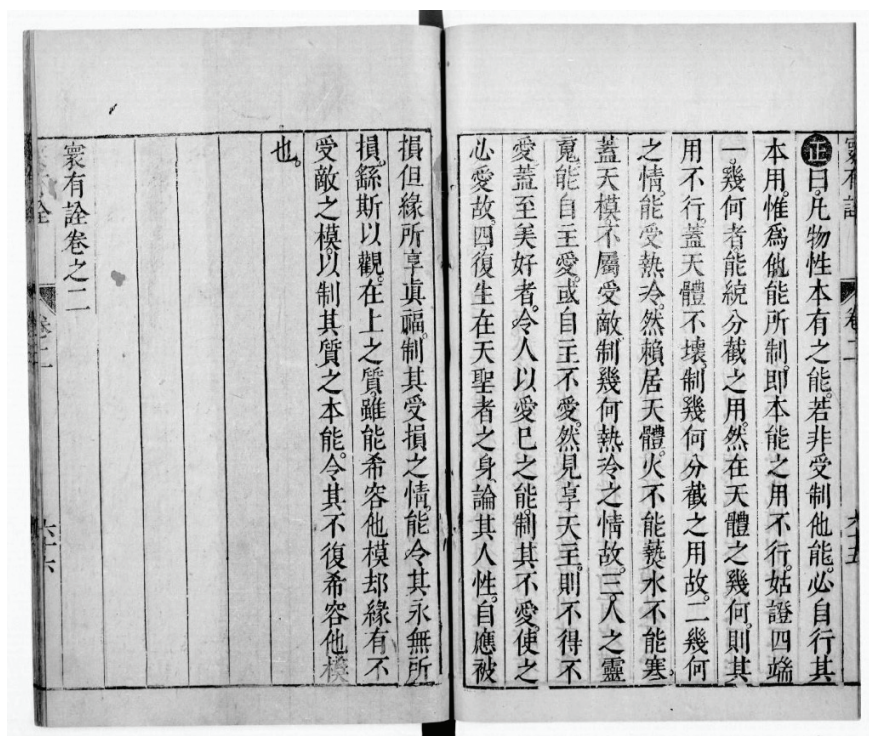 寰有詮
卷二
六十五
正曰。凡物性本有之能。若非受制他能。必自行其
本用。惟爲他能所制。卽本能之用不行。姑證四端
一。幾何者。能統分截之用。然在天體之幾何。則其
用不行。蓋天體不壞。制幾何分截之用故。二幾何
之情。能受熱冷。然賴居天體。火不能爇水不能寒。
蓋天模不屬受敵。制幾何熱冷之情故。三。人之靈
䰟。能自主愛。或自主不愛。然見享天主。則不得不
愛。蓋至美好者。令人以愛巳之能。制其不愛。使之
心愛故。四。復生在天聖者之身。論其人性。自應被
損但緣所享眞福。制其受損之情。能令其永無所
損。繇斯以觀。在上之質。雖能希容他模却緣有不
受敵之模。以制其質之本能。令其不復希容他模
也。
寰有詮卷之二
卷二
六十六